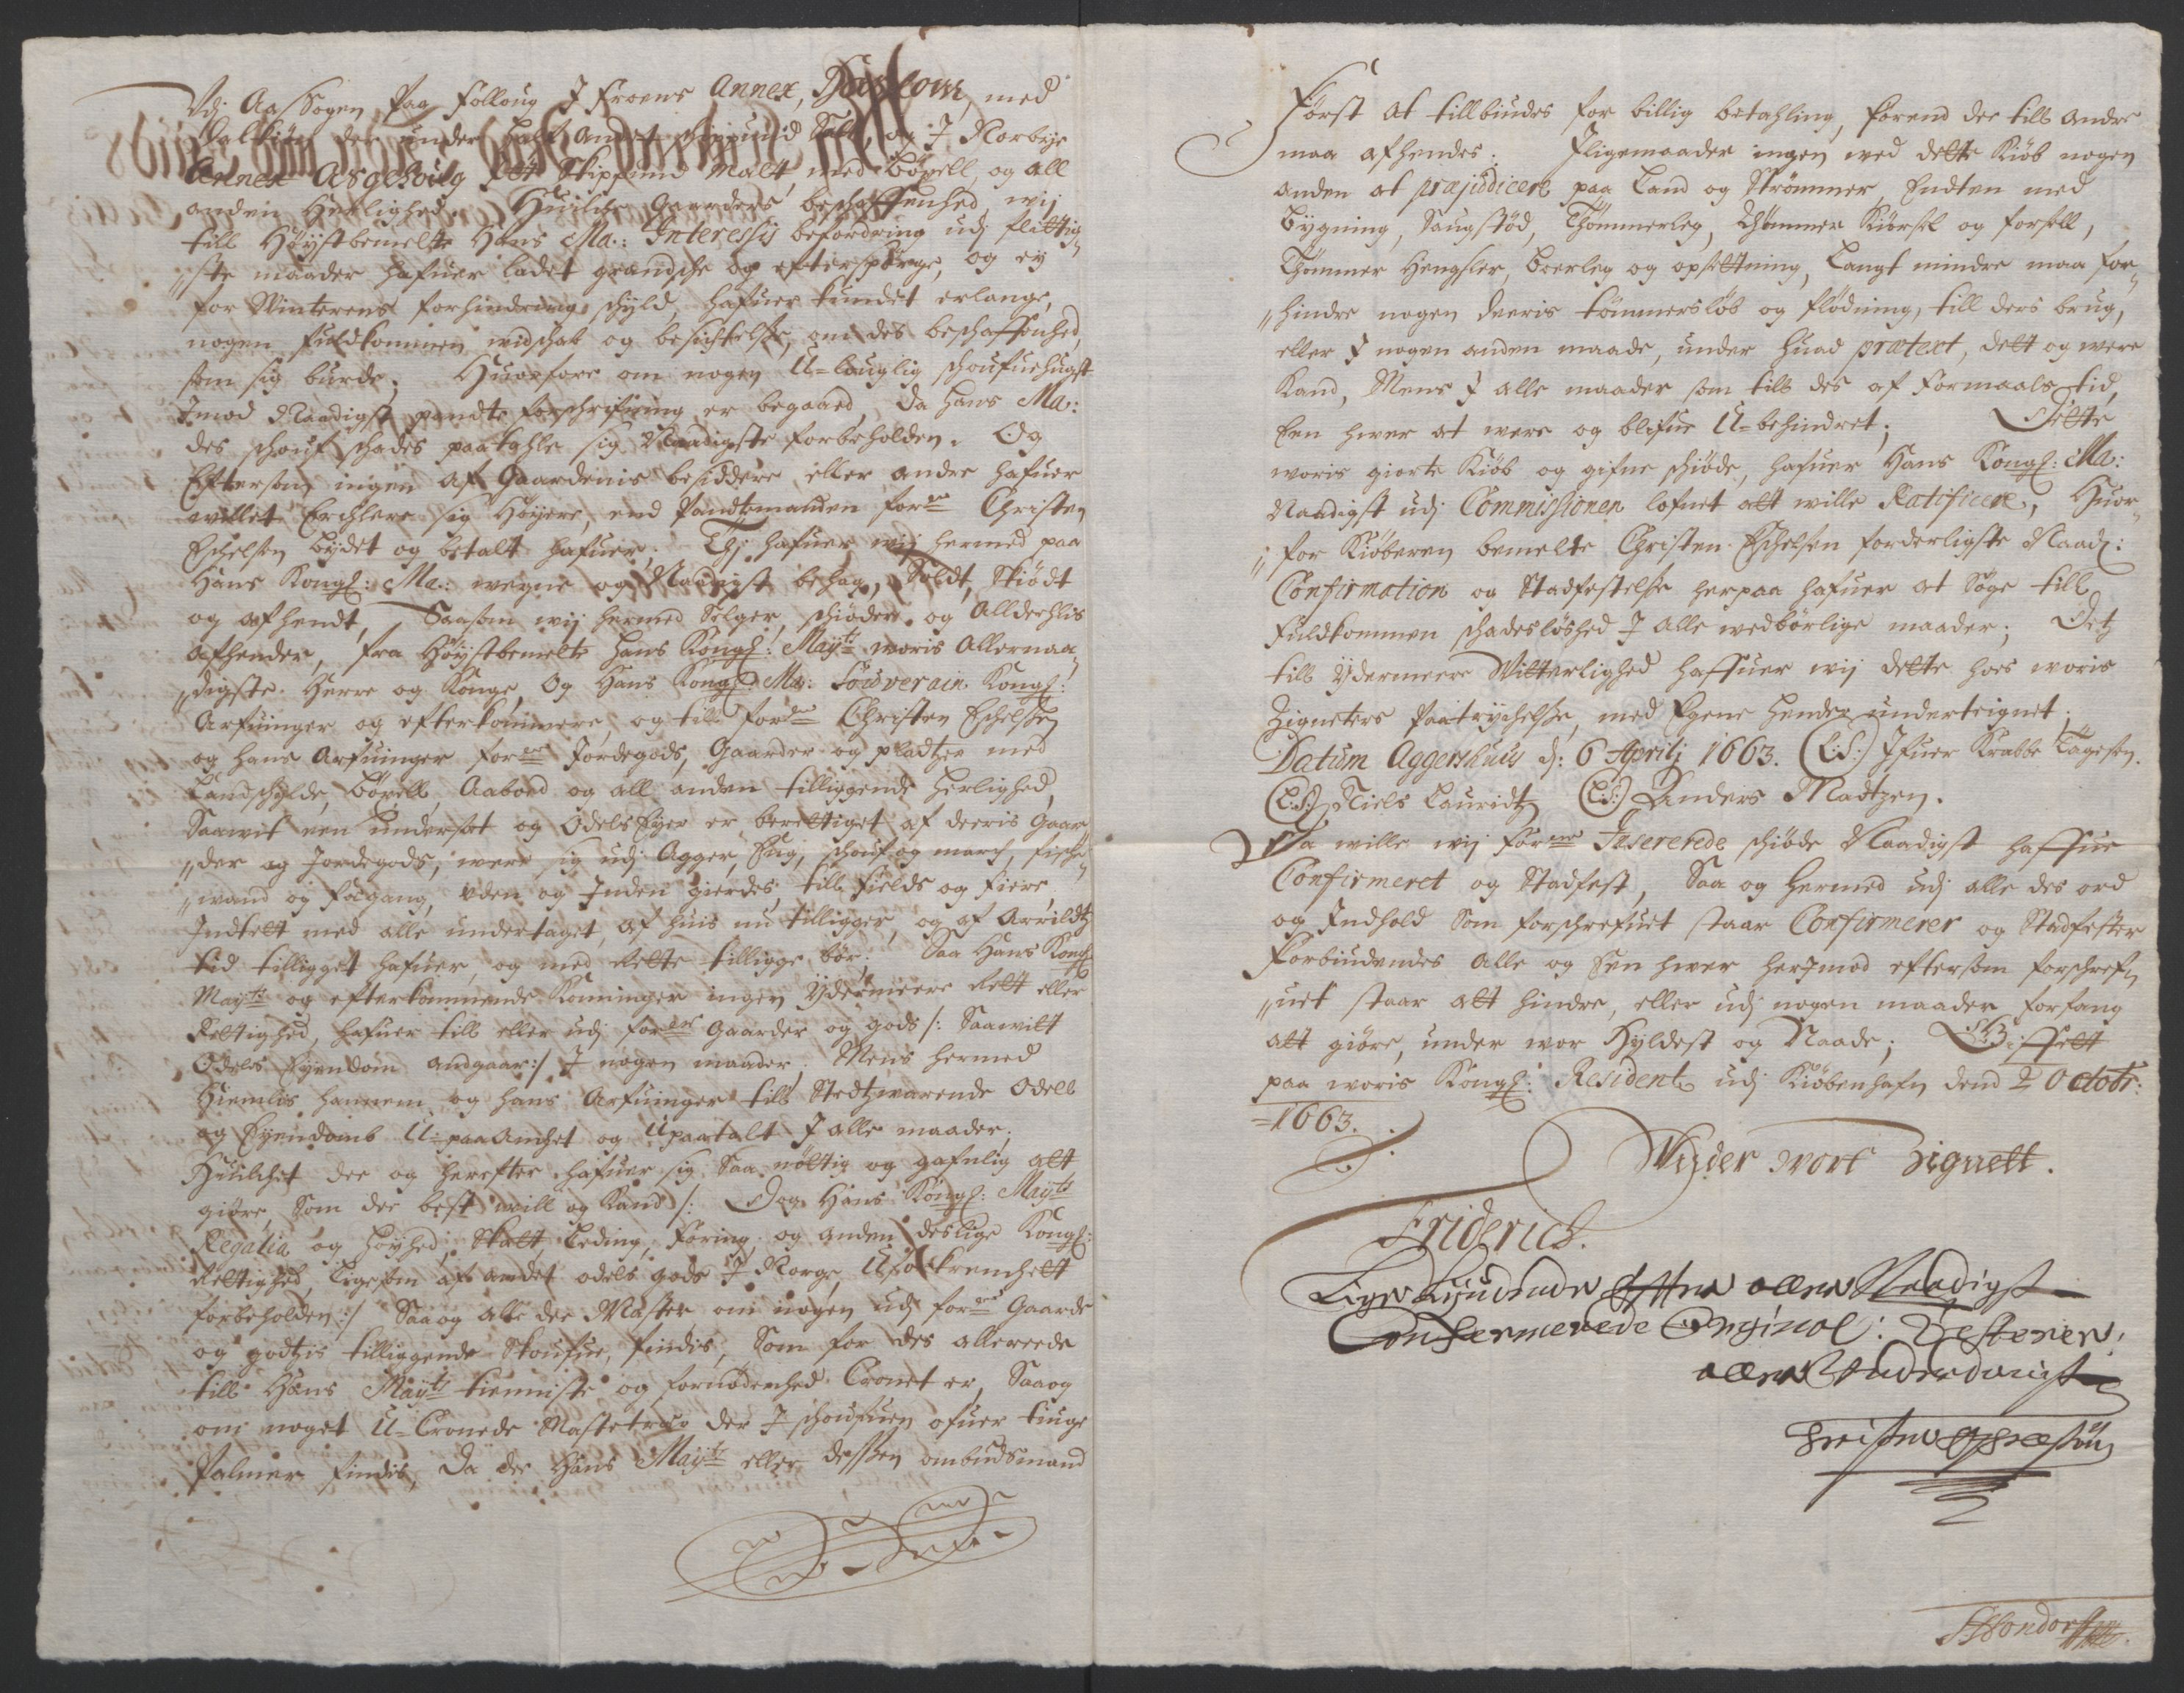 Udj Aas Sogen paa Folloug I Froens Annex, Haslom, med
Dalkiøn der under halfandet Skippund Salt, og I Norbye
Annex Aasgehoug Ett Skippund Malt, med Bøxell og all
anden Herlighed. Huilche Gaarders beschaffenhed, wij
till Høystbemelte Hans Ma: Interessis befordring udj flittig-
"ste maader hafuer ladet grandsche og efterspørge, og ey
for Winterens forhindring schyld, hafuer kundet erlange,
nogen fuldkommen widschab og besichtelse, om des beschaffenhed,
som sig burde. Huorfore om nogen U=lauglig schoufuehugst
Imod Naadigst pandte forschrifning er begaaed, da Hans Ma:
des schouf schades paatahle sig Naadigste forbeholden. Og
Eftersom ingen af Gaardenis besiddere eller andre hafuer
willet Erchlere sig høyere, end Pandtmanden forne Christen
Eschelsen bydet og betalt hafuer. Thj hafuer wij hermed paa
Hans Kongl: Ma: wegne og Naadigst behag, Soldt, Skiødt
og afhendt, Saasom wij hermed Selger, schiøder og Alldeehlis
afhender, fra Høystbemelte Hans Kongl: Mayts woris Allernaa-
"digste Herre og Konge, Og Hans Kongl: Ma: Souverain Kongl:
Arfuinger og efterkommere, og till forne Christen Eschelsen
og hans Arfuinger forne Jordegods, Gaarder og pladtzer med
Landschylde, Bøxell, Aaboed og all anden tilliggende herlighed,
Saawit een undersat og Odels Eyer er berettiget af deeris Gaar-
"der og Jordegods, were sig udj Agger, Eng, schouf og march, fische-
"wand og fægang, uden og Inden gierdes, till Fields og Fiere,
Indtelt med alle undertaget, af huis nu tilligger, og af Arrildtz
tid tilligget hafuer, og med Rette tilligge bør; Saa Hans Kongl:
Mayts og efterkommende Konninger ingen Ydermeere Rett eller
Rettighed, hafuer till eller udj forne Gaarder og gods /: Saawitt
Odels Eyendom andgaar :/ I nogen maader. Mens hermed
Hiemlis hannem og hans Arfuinger till Stedtzwarende Odell
og Eyendomb U=paaAnchet og Upaatalt I alle maader;
Huilchet der og herefter hafuer sig Saa nøttig og gafnlig att
giøre, Som der best will og Kand /: Dog Hans Kongl: Mayts
Regalia og høyhed, Skatt, Leding, Føring, og anden deslige Kongl:
Rettighed, Ligesom af andet odels gods I Norge, Uforkrenchett
forbeholden :/ Saa og alle der Master om nogen udj forne Gaarde
og godtzis tilliggende Skoufue, findis, Som for des allereede
till Hans Mayts tienniste og fornødenhed Cronet er, Saaog
om noget U=Cronede Mastetræ der I schoufuen ofuer tiuge
Palmer findis, da der Hans Mayts eller dessen ombudsmand
Først at tillbiudes for billig betahling, førend der till andre
maa afhendes; Iligemaader ingen wed dette Kiøb nogen
anden at præjudicere paa Land og Strømmer, Endten med
Bygning, Saugstød, Tømmerleg, Thømmer Kiørsel og forsell,
Tømmer Hengsler, boerleg og opsettning, Langt mindre maa for-
"hindre nogen deeris tømmersløb og flødning, till ders brug,
eller I nogen anden maade, under huad prætext, dett og were
Kand, Mens I alle maader som till des af Formaals tid,
Een hwer at were og blifue U=behindret; Dette
woris giorte Kiøb og gifne schiøde, hafuer Hans Kongl: Ma:
Naadigst udj Commissionen lofuet att wille Ratificere, Huor-
"for Kiøberen bemelte Christen Eschelsen forderligste Naad:
Confirmation og Stadfestelse herpaa hafuer at Søge till
Fuldkommen schadesløshed I alle wedbørlige maader; Detz
till Ydermeere Witterlighed haffuer wij dette hoes woris
Zigneters Paatrychelse, med Egene hender underteignet;
Datum Aggershuus d: 6 Aprilj 1663. (L:S:) Ifuer Krabbe Tagesen.
(L:S:) Niels Lauridtz (L:S:) Anders Madtzen.
Da wille wij forne Insererede schiøde Naadigst haffue
Confirmeret og Stadfest, Saa og hermed udj alle des ord
og Indhold Som forschrefuet staar Confirmerer og Stadfester
Forbiudendes Alle og Een hwer herimod eftersom forschref-
"uet staar att hindre, eller udj nogen maader forfang
att giøre, under wor Hyldest og Naade; Giffett
paa woris Kongl: Residentz udj Kiøbenhafn dend 2 Octobr:
=1663.
Under wort Zignett.
Friderich.
Lige Liudende Efter aller Naadigst
Confermerede Orginal: Testerer
aller Underdanigst
Christen Eschelsøn